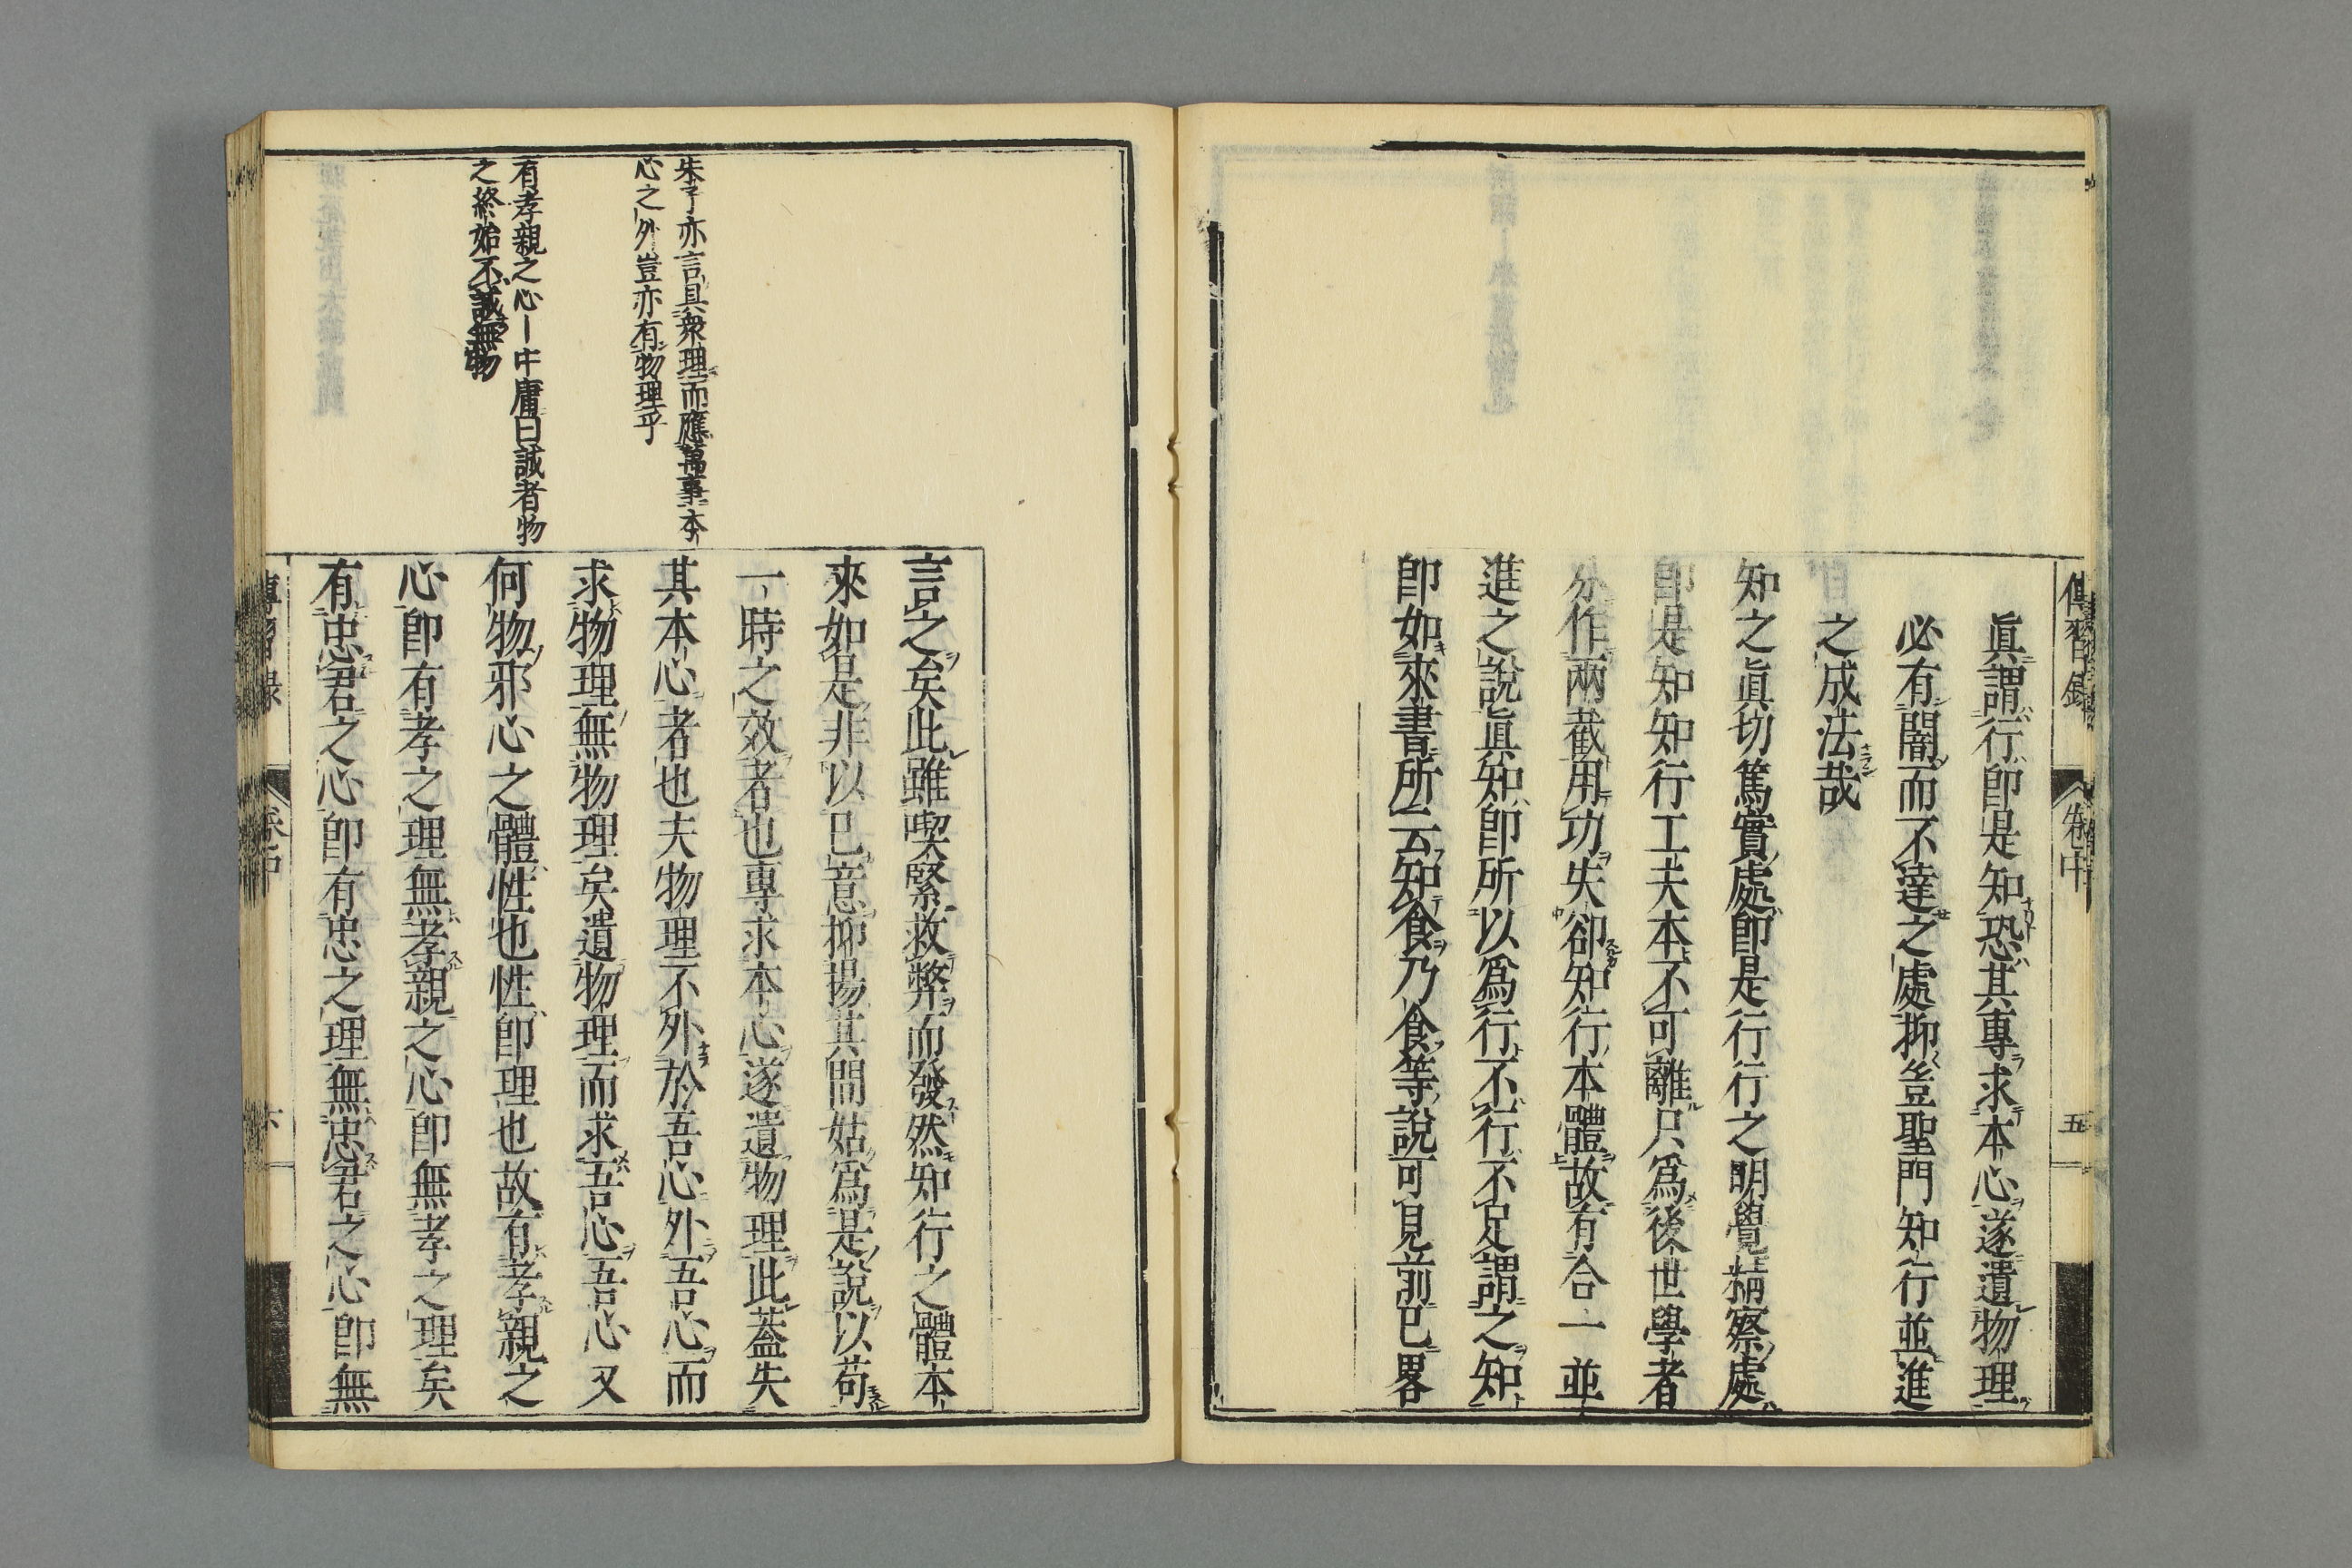 傳習録
卷中
五
眞謂行即是知恐其專求本心遂遺物理
必有闇而不達之處抑豈聖門知行並進
之成法哉
知之眞切篤實處即是行行之明覺精察處
即是知知行工夫本不可離只爲後世學者
分作兩截用功失卻知行本體故有合一並
進之說眞知即所以爲行不行不足謂之知
即如來書所云知食乃食等說可見前已畧
言之矣此雖喫緊救弊而發然知行之體本
來如是非以已意抑揚其間姑爲是說以苟
一時之效者也專求本心遂遺物理此蓋失
其本心者也夫物理不外於吾心外吾心而
求物理無物理矣遺物理而求吾心吾心又
何物邪心之體性也性即理也故有孝親之
心即有孝之理無孝親之心即無孝之理矣
有忠君之心即有忠之理無忠君之心即無
朱子亦言具衆理而應萬事本
心之外豈亦有物理乎
有孝親之心－中庸曰誠者物
之終始不誠無物
傳習録
卷中
六